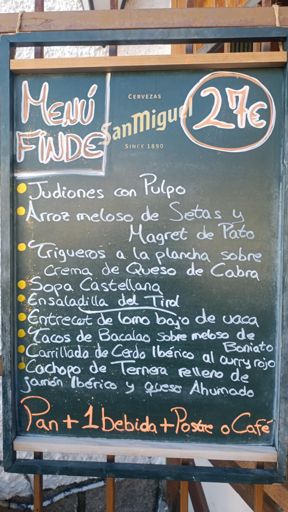 MENÚ
FINDE
CERVEZAS
San Miguel
SINCE 1890
27€
Judiones con Pulpo
Arroz meloso de Setas y
Magret de Pato
Trigueros a la plancha sobre
crema de Queso de Cabra
Sopa Castellana
Ensaladilla del Tirol
Entrecot de lomo bajo de vaca
Tacos de Bacalao sobre meloso de
Boniato
Carrillada de Cerdo Ibérico al curry rojo
Cachopo de Ternera relleno de
jamón Ibérico y queso Ahumado
Pan + 1 bebida + Postre o Café